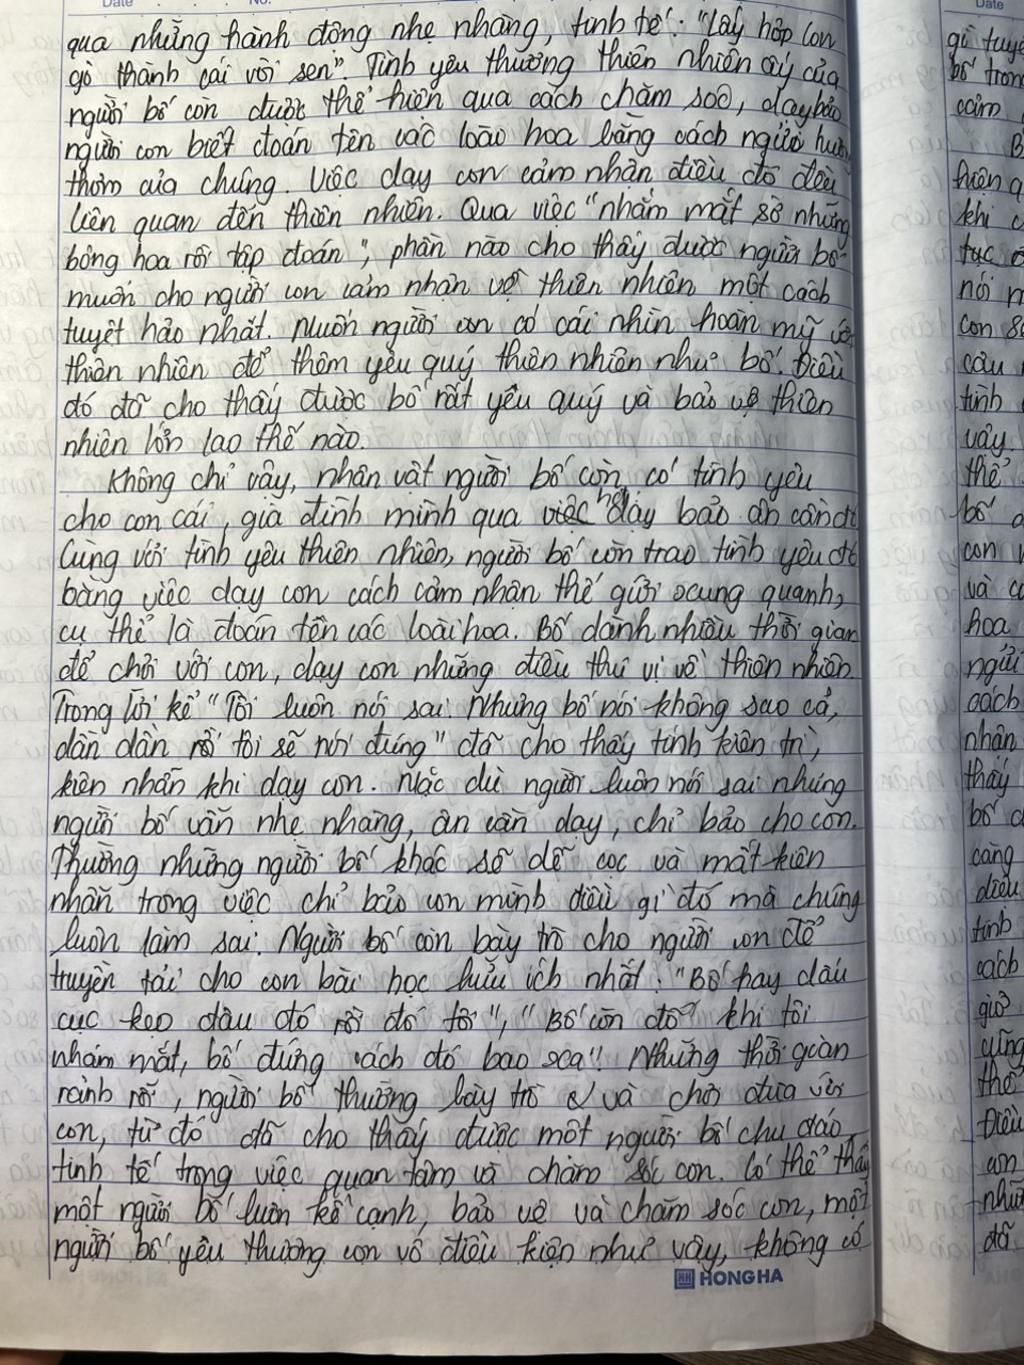 Date No.
qua những hành động nhẹ nhàng, tinh tế: "Lấy hộp lon
gò thành cái vòi sen". Tình yêu thương thiên nhiên ấy của
người bố còn được thể hiện qua cách chăm sóc, dạy bảo
người con biết đoán tên các loài hoa bằng cách ngửi hương
thơm của chúng. Việc dạy con cảm nhận điều đó đều
liên quan đến thiên nhiên. Qua việc "nhắm mắt sờ những
bông hoa rồi tập đoán", phần nào cho thấy được người bố
muốn cho người con cảm nhận về thiên nhiên một cách
tuyệt hảo nhất. Muốn người con có cái nhìn hoàn mỹ về
thiên nhiên để thêm yêu quý thiên nhiên như bố. Điều
đó đã cho thấy được bố rất yêu quý và bảo vệ thiên
nhiên lớn lao thế nào.
Không chỉ vậy, nhân vật người bố còn có tình yêu
cho con cái, gia đình mình qua việc dạy bảo ân cần
Cùng với tình yêu thiên nhiên, người bố còn trao tình yêu đó
bằng việc dạy con cách cảm nhận thế giới xung quanh,
cụ thể là đoán tên các loài hoa. Bố dành nhiều thời gian
để chơi với con, dạy con những điều thú vị về thiên nhiên
Trong lời kể "Tôi luôn nói sai. Nhưng bố nói không sao cả,
dần dần rồi tôi sẽ nói đúng" đã cho thấy tính kiên trì,
kiên nhẫn khi dạy con. Mặc dù người luôn nói sai nhưng
người bố vẫn nhẹ nhàng, ân cần dạy, chỉ bảo cho con.
Thường những người bố khác sẽ dễ cọc và mất kiên
nhẫn trong việc chỉ bảo con mình điều gì đó mà chúng
luôn làm sai. Người bố còn bày trò cho người con để
truyền tải cho con bài học hữu ích nhất: "Bố hay dấu
cục kẹo đâu đó rồi đố tôi", "Bố còn đố khi tôi
nhắm mắt, bố đứng cách đó bao xa". Những thời gian
rảnh rỗi, người bố thường bày trò và chơi đùa với
con, từ đó đã cho thấy được một người bố chu đáo
tinh tế trong việc quan tâm và chăm sóc con. Có thể thấy
một người bố luôn kề cạnh, bảo vệ và chăm sóc con, một
người bố yêu thương con vô điều kiện như vậy, không có
HONG HA
Date
gì
bố
cảm
B
khi
nói
con
tình
vậy.
thể
bố
con
và
hoa
ngửi
cách
nhân
thấy
bố
càng
điều
tình
cách
giờ
cũng
thể
Điều
con
đã